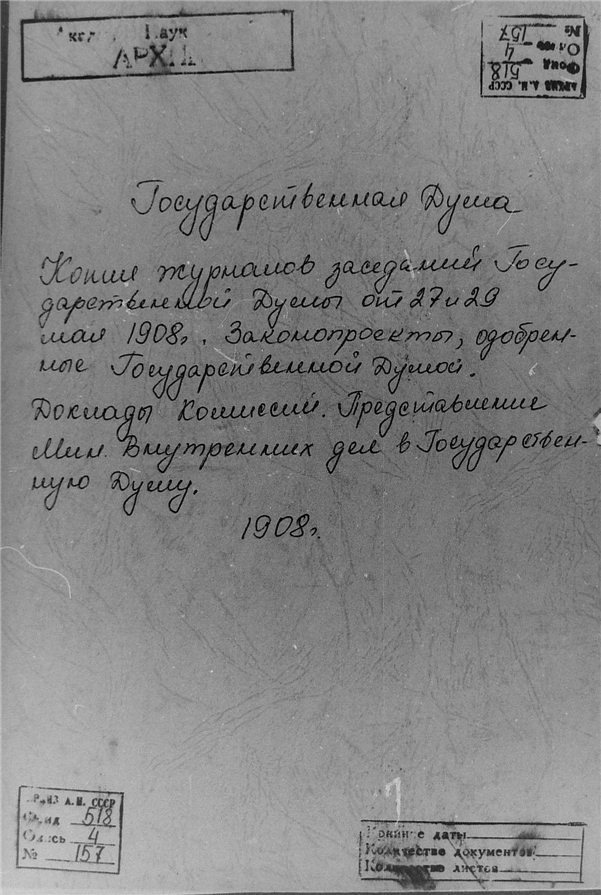 Наук
АРХИВ
АРХИВ А. Н. СССР
Фонд 518
Опись 4
№ 157
Государственная Дума
Копии журналов заседаний Госу-
дарственной Думы от 27 и 29
мая 1908г. Законопроекты, одобрен-
ные Государственной Думой.
Доклады Комиссий. Представление
Мин. Внутренних дел в Государствен-
ную Думу.
1908г.
АРХИВ А. Н. СССР
Фонд 518
Опись 4
№ 157
Крайние даты
Количество документов
Количество листов